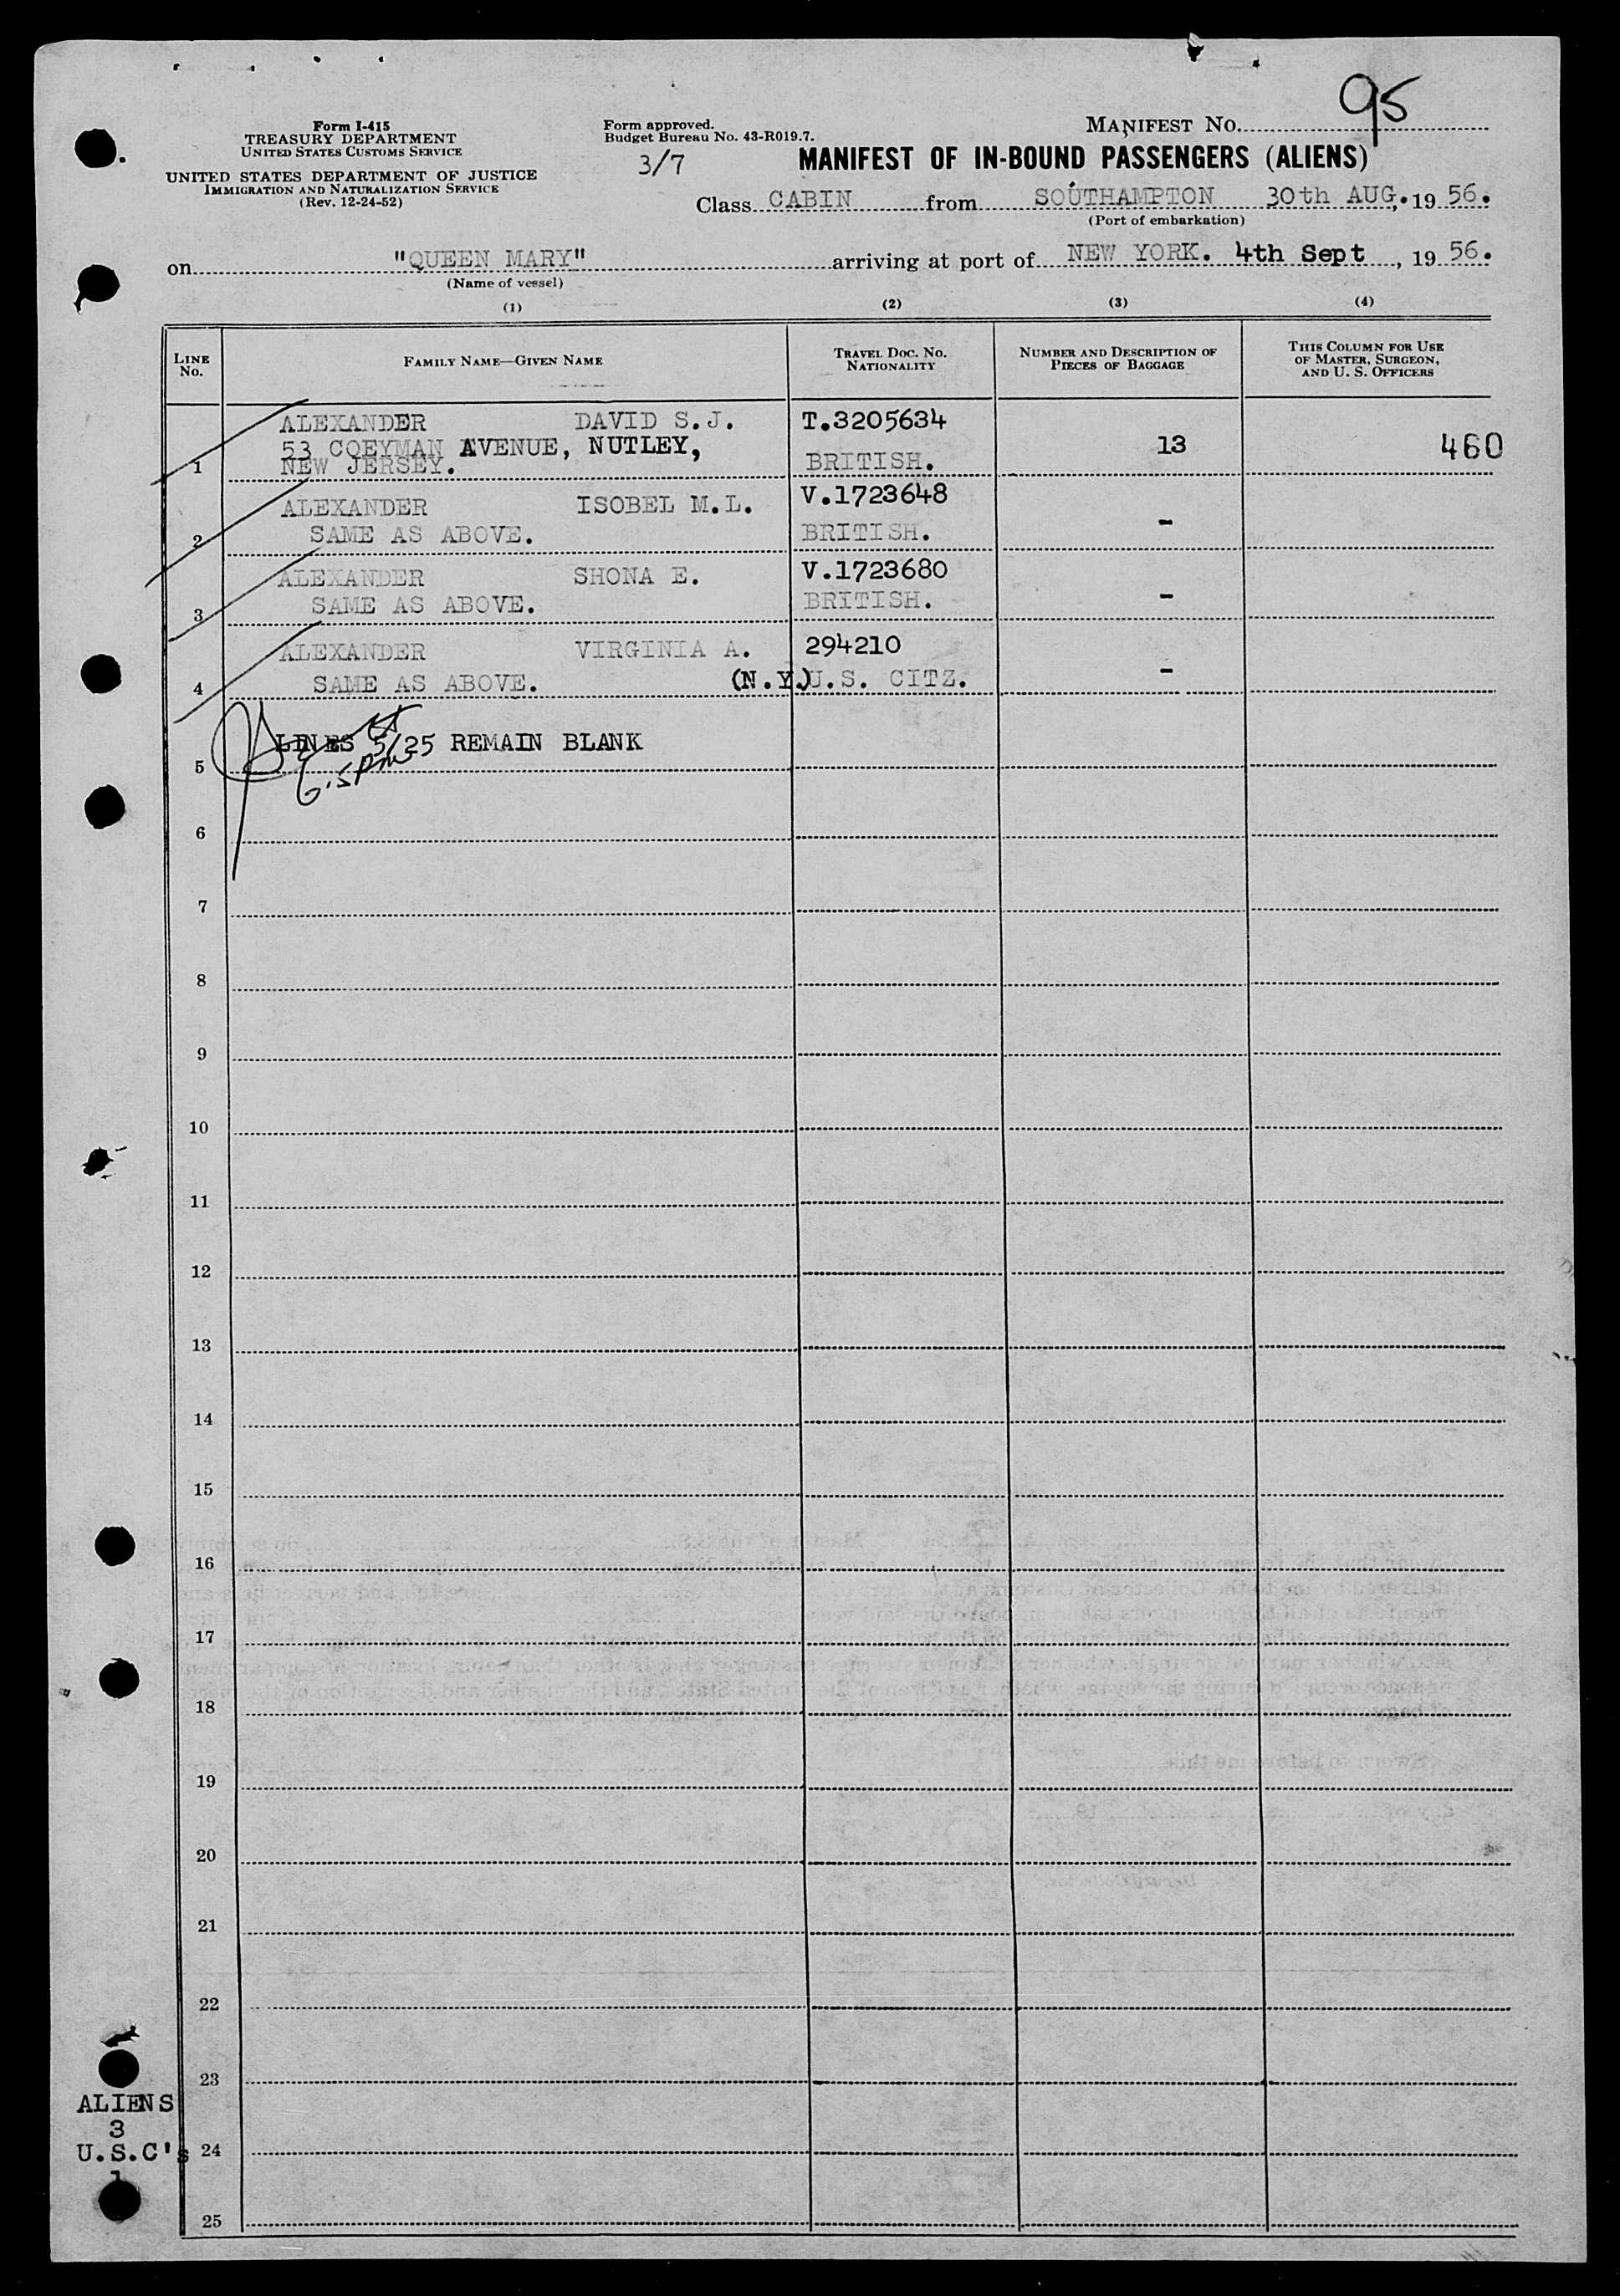 95
Form I-415
TREASURY DEPARTMENT
UNITED STATES CUSTOMS SERVICE
UNITED STATES DEPARTMENT OF JUSTICE
IMMIGRATION AND NATURALIZATION SERVICE
(Rev. 12-24-52)
Form approved.
Budget Bureau No. 43-R019.7.
3/7
MANIFEST NO.
MANIFEST OF IN-BOUND PASSENGERS (ALIENS)
Class CABIN from SOUTHAMPTON 30th AUG, 19 56.
(Port of embarkation)
on "QUEEN MARY" arriving at port of NEW YORK. 4th Sept, 19 56.
(Name of vessel)
(1) (2) (3) (4)
LINE NO. FAMILY NAME—GIVEN NAME TRAVEL DOC. NO. NATIONALITY NUMBER AND DESCRIPTION OF PIECES OF BAGGAGE THIS COLUMN FOR USE OF MASTER, SURGEON, AND U. S. OFFICERS
ALEXANDER DAVID S.J. T.3205634
53 COEYMAN AVENUE, NUTLEY, 13 460
1 NEW JERSEY. BRITISH.
ALEXANDER ISOBEL M.L. V.1723648
2 SAME AS ABOVE. BRITISH. -
ALEXANDER SHONA E. V.1723680
3 SAME AS ABOVE. BRITISH. -
ALEXANDER VIRGINIA A. 294210
4 SAME AS ABOVE. (N.Y.) U.S. CITZ. -
LINES 5/25 REMAIN BLANK
5
6
7
8
9
10
11
12
13
14
15
16
17
18
19
20
21
22
23
ALIENS
3
U.S.C's 24
1
25